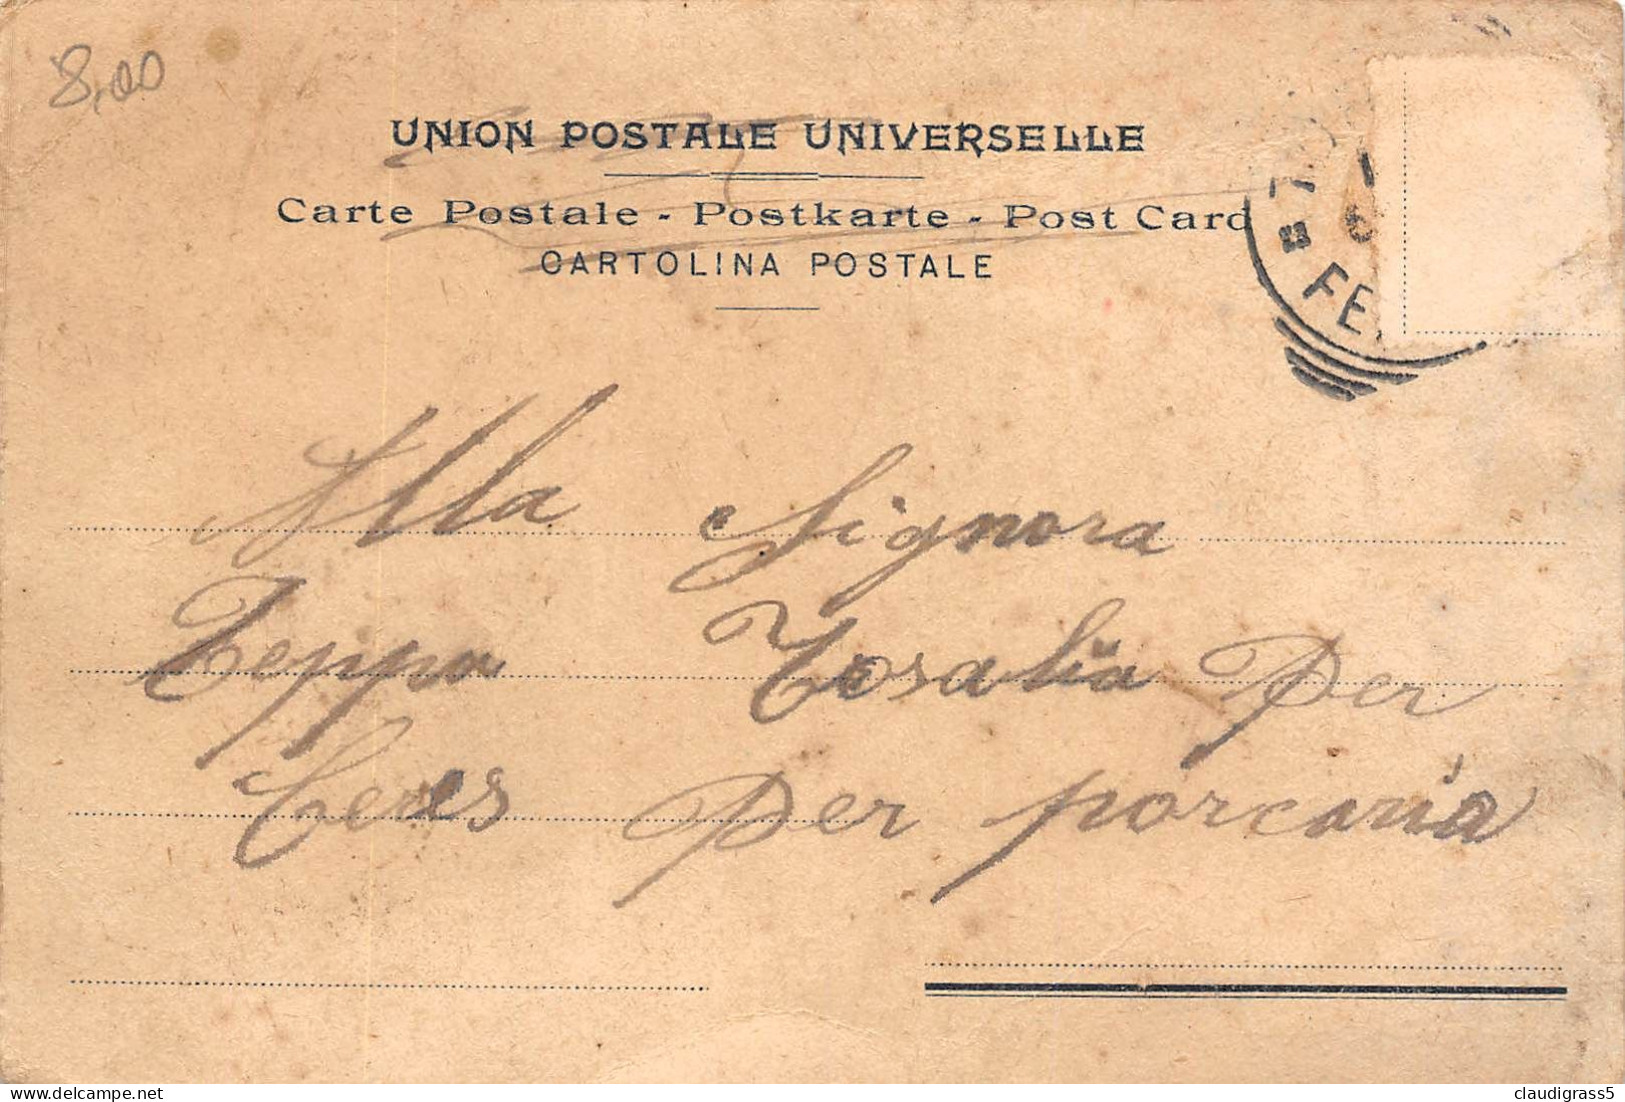 8,00
UNION POSTALE UNIVERSELLE
Carte Postale - Postkarte - Post Card
CARTOLINA POSTALE
FE
Alla Signora
Teppa Rosalia Per
Ceres Per porcaria
claudigrass5